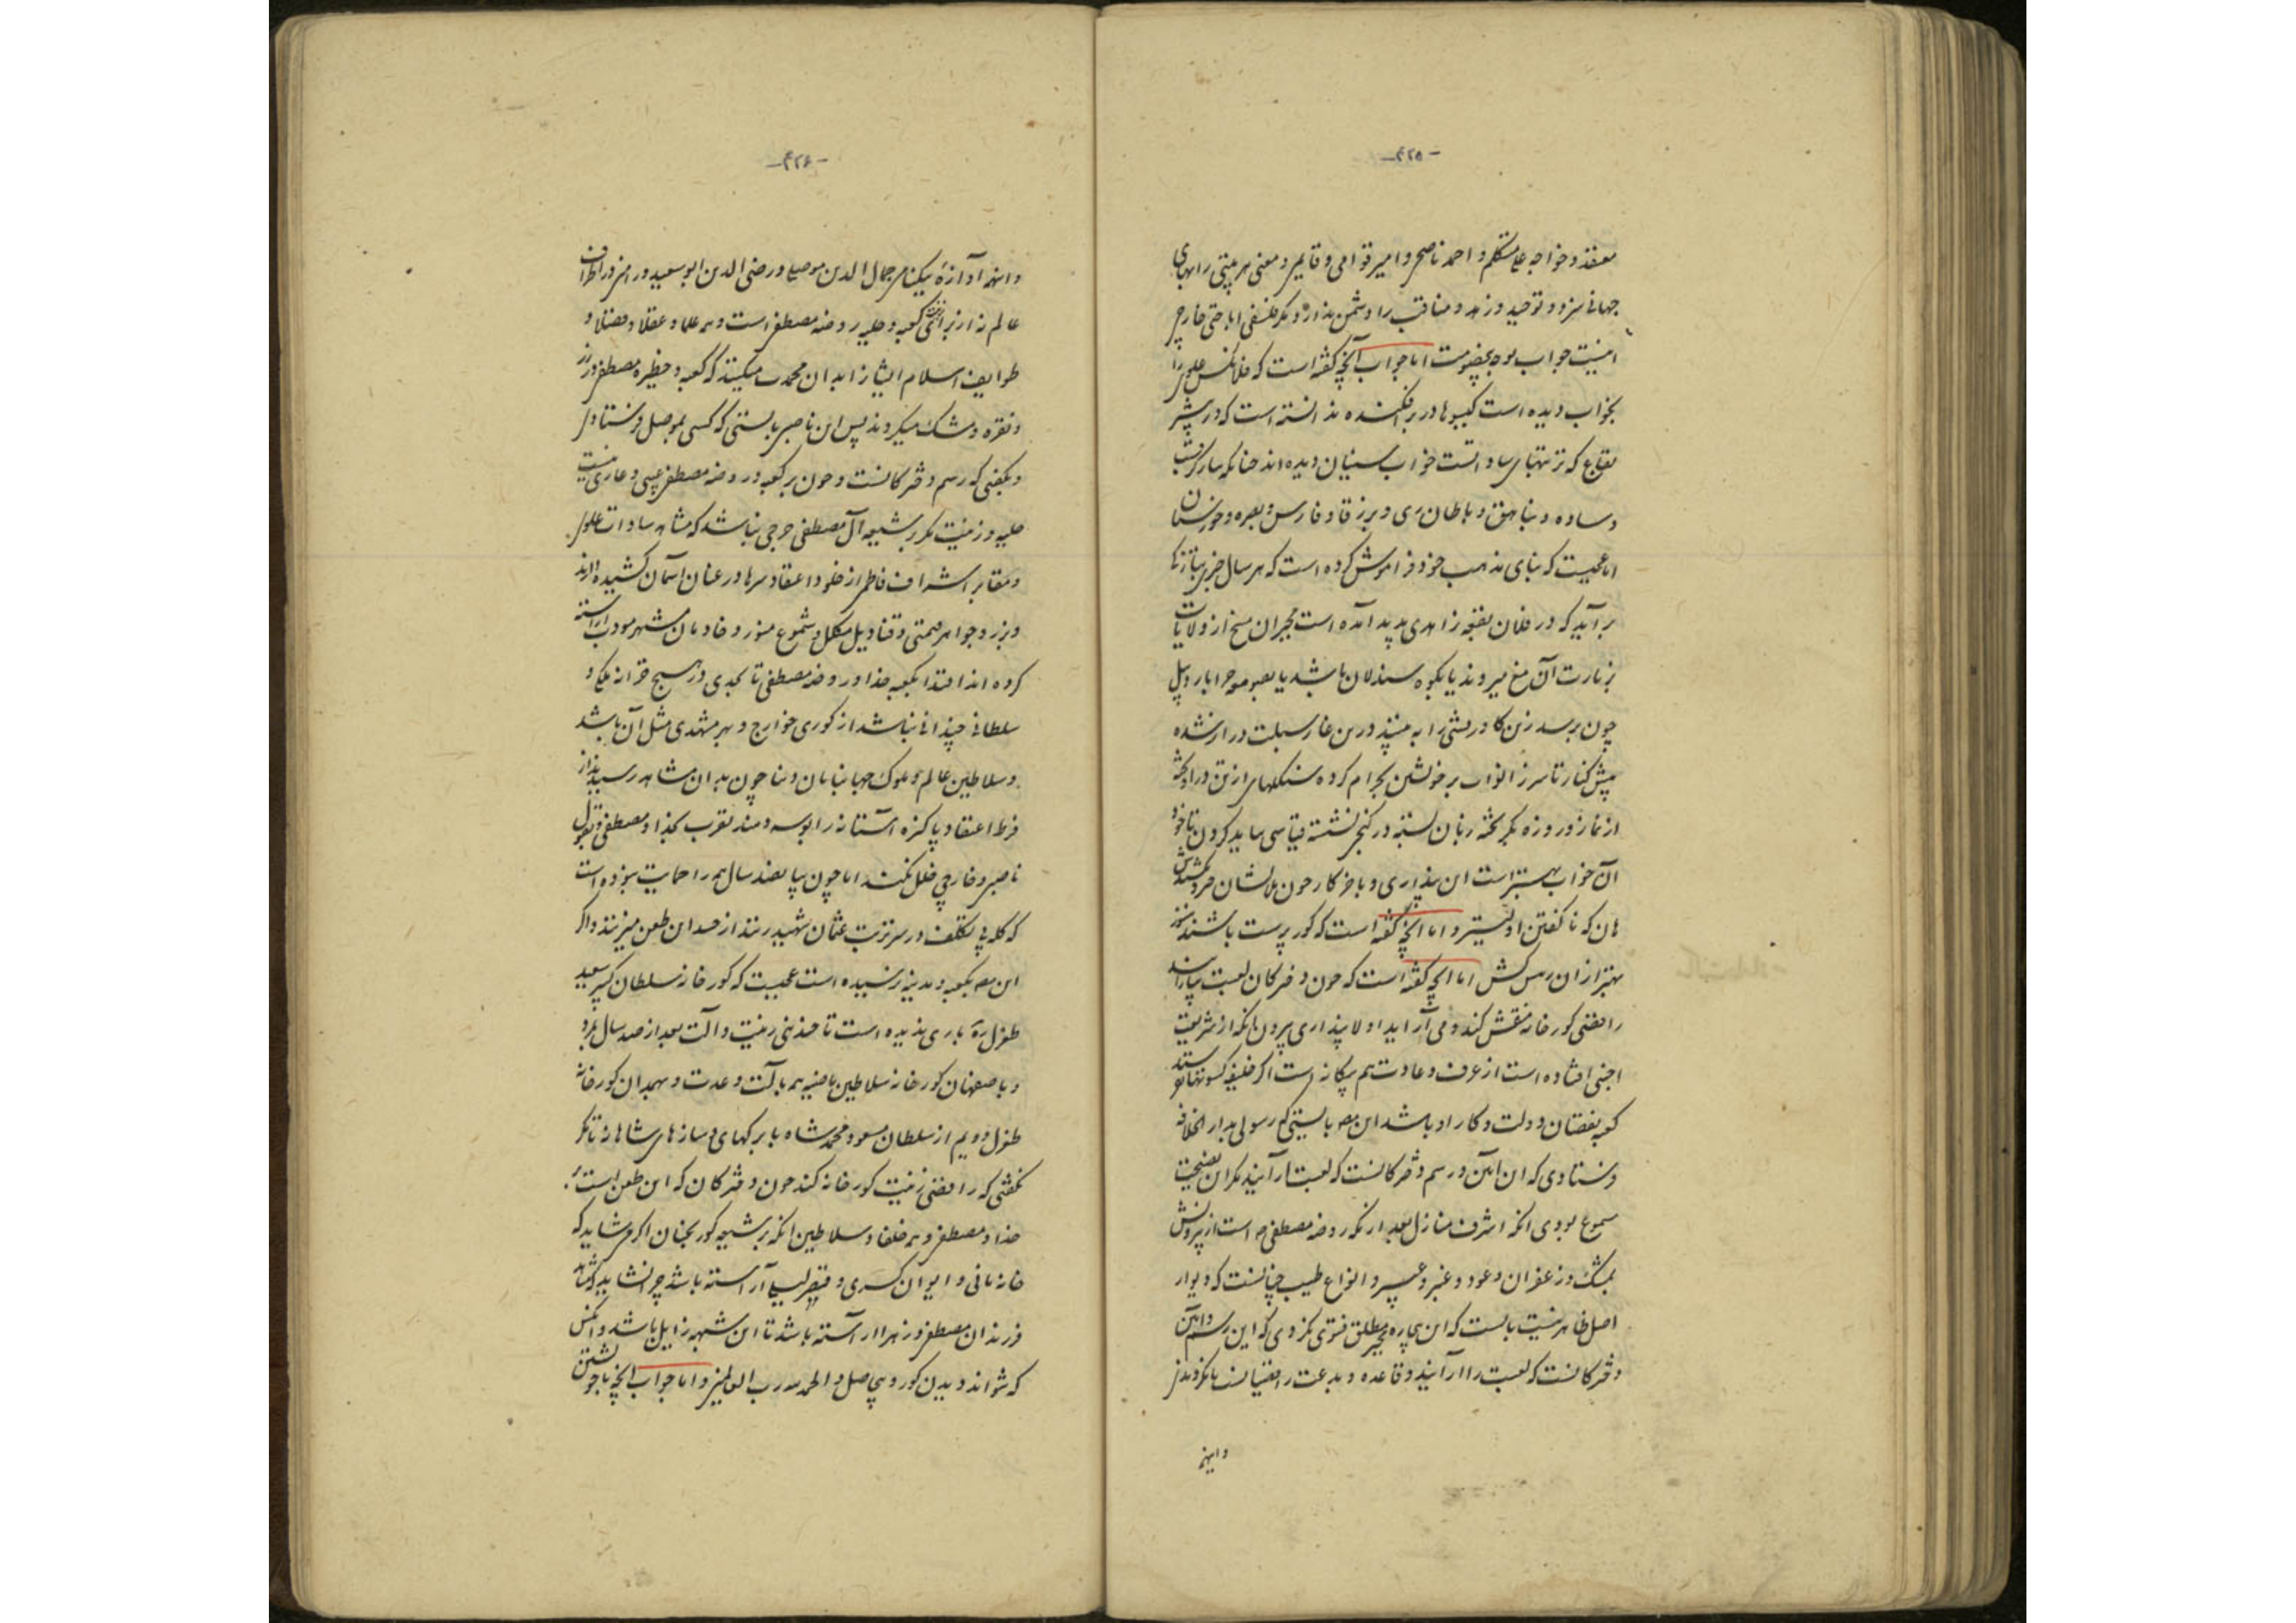 -۴۲۵-
معتقد و خواجه علی متکلم و احمد ناصح و امیر قوامی و قایمی و معنی هر بیتی را بهای
جهانی سزد و توحید و زهد و مناقب را دشمن ندارد مگر فلسفی اباحتی خارجی
اینست جواب بوجه خصومت اما جواب آنچه گفته است که فلانکس علوی را
بخواب دیده است گیسوها در برافکنده ندانسته است که در بیشتر
بقاع که تربتهای ساداتست خواب سنیان دیده‌اند چنانکه سارکرشب
و ساده و بنابهق و باطان ری و برزقاد و فارس و بصره و خوزستان
اما عجبست که بنای مذهب خود فراموش کرده است که هر سال خبری بتازگی
برآید که در فلان بقعه زاهدی پدید آمده است مجبران مسخ از ولایات
بزیارت آن مغ میروند یا بکوه سندلان باشد یا بصومعه خرابا ردپیل
چون برسد زن گاو ریشی را به بینند در بن غار سبلت دراز شده
پیش کنار تا سر زانو آب بر خویشتن بحرام کرده شکلهای ازین در آویخته
از نماز و روزه بگریخته زبان بسته در کنجی نشسته قیاسی باید کردن تا خود
آن خواب بهتر است این بیداری و باخر کار چون بدانشان
هان که ناگفتن اولیتر و اما آنچه گفته است که گورپرست باشند هنوز
بهتر از آن ریس کش اما آنچه گفته است که چون دخترکان لعبت بیارایند
رافضی گورخانه منقش کند و می آراید اولا پنداری برون از آنکه از شریعت
اجنبی افتاده است از عرف و عادت هم بیگانه است اگر خلیفه کسوتها فرستد
کعبه بفقتان دولت و کار او باشد این مصنف بایستی که رسولی بدار الخلافه
فرستادی که این آیین و رسم دخترکانست که لعبت آرایند مگر این نصیحت
مسموع بودی آنکه اشرف منازل بعد از مکه روضه مصطفی ص است از بیرونش
بمشک و زعفران و عود و عنبر و عبیر و انواع طیب چنانست که دیوار
اصل ظاهر نیست بایست که این بیچاره مجبر مطلق فتوی کردی که این رسم و آیین
دخترکانست که لعبت را آرایند و قاعده و بدعت رافضیانست تا نکردندی
و اینهمه
-۴۲۶-
و اینهمه آوازه نیکنامی جمال الدین موصلی و رضی الدین ابو سعید ورامینی در اطراف
عالم نه از برای زینت کعبه و حلیه روضه مصطفی است و همه علما و عقلا و فضلا و
طوایف اسلام ایشان را بدان محمدت میکنند که کعبه و حظیره مصطفی را بزر
و نقره و مشک میگیرند پس این ناصبی بایستی که کسی بموصل فرستادی
و بگفتی که رسم دخترکانست و چون بر کعبه و روضه مصطفی عیبی و عاری نیست
حلیه و زینت مگر بر شیعه آل مصطفی حرجی نباشد که مشاهد سادات علوی
و مقابر اشراف فاطمی از خلوّ اعتقاد سرها در عنان آسمان کشیده دارند
و بزر و جواهر قیمتی و قنادیل مکلل و شموع منور و خادمان مشهر مودب آراسته
کرده‌اند اقتدا بکعبه خدا و روضه مصطفی تا بحدی در هیچ خزانه ملکی و
سلطانی چندانی نباشد از کوری خوارج و بهر مشهدی مثل آن باشد
و سلاطین عالم و ملوک جهانبانان دنیا چون بدان مشاهد رسیدند از
فرط اعتقاد پاکیزه آستانه را بوسه دهند تقرب بخدا و مصطفی و بقول
ناصبی و خارجی خلل نکند اما چون بپانصد سال همه را حمایت نبوده است
که کله ی بتکلف در سر تربت عثمان شهید زنند از حسد این طعن میزنند و اگر
این مصنف بکعبه و مدینه نرسیده است عجبست که گورخانه سلطان کبیر سعید
طغرل ره باری ندیده است تا چندینی زینت و آلت بعد از صد سال برو
و باصفهان گورخانه سلاطین ماضیه همه با آلت و عدت و بهمدان گورخانه
طغرل دویم از سلطان مسعود و محمدشاه با برگهای و سازهای شاهانه تا نگر
نگفتی که رافضی زینت گورخانه کند چون دخترکان که این طعن است بر
خدا و مصطفی و همه خلفا و سلاطین آنکه بر شیعه گور بخنان اگر می شاید که
خانه مانی و ایوان کسری و قیصر لیا آراسته باشد چرا نشاید که مشاهد
فرزندان مصطفی و زهرا آراسته باشد تا این شبهه زایل باشد و آنکس
که نتواند دیدن کور و بی حاصل و الحمد لله رب العالمین و اما جواب آنچه با خویشتن